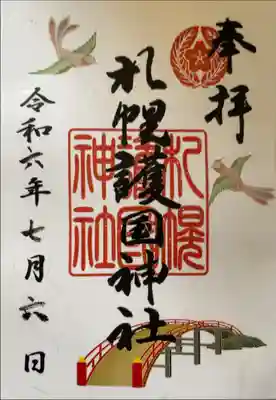 奉拝
札幌護国神社
札幌護国神社
令和六年七月六日